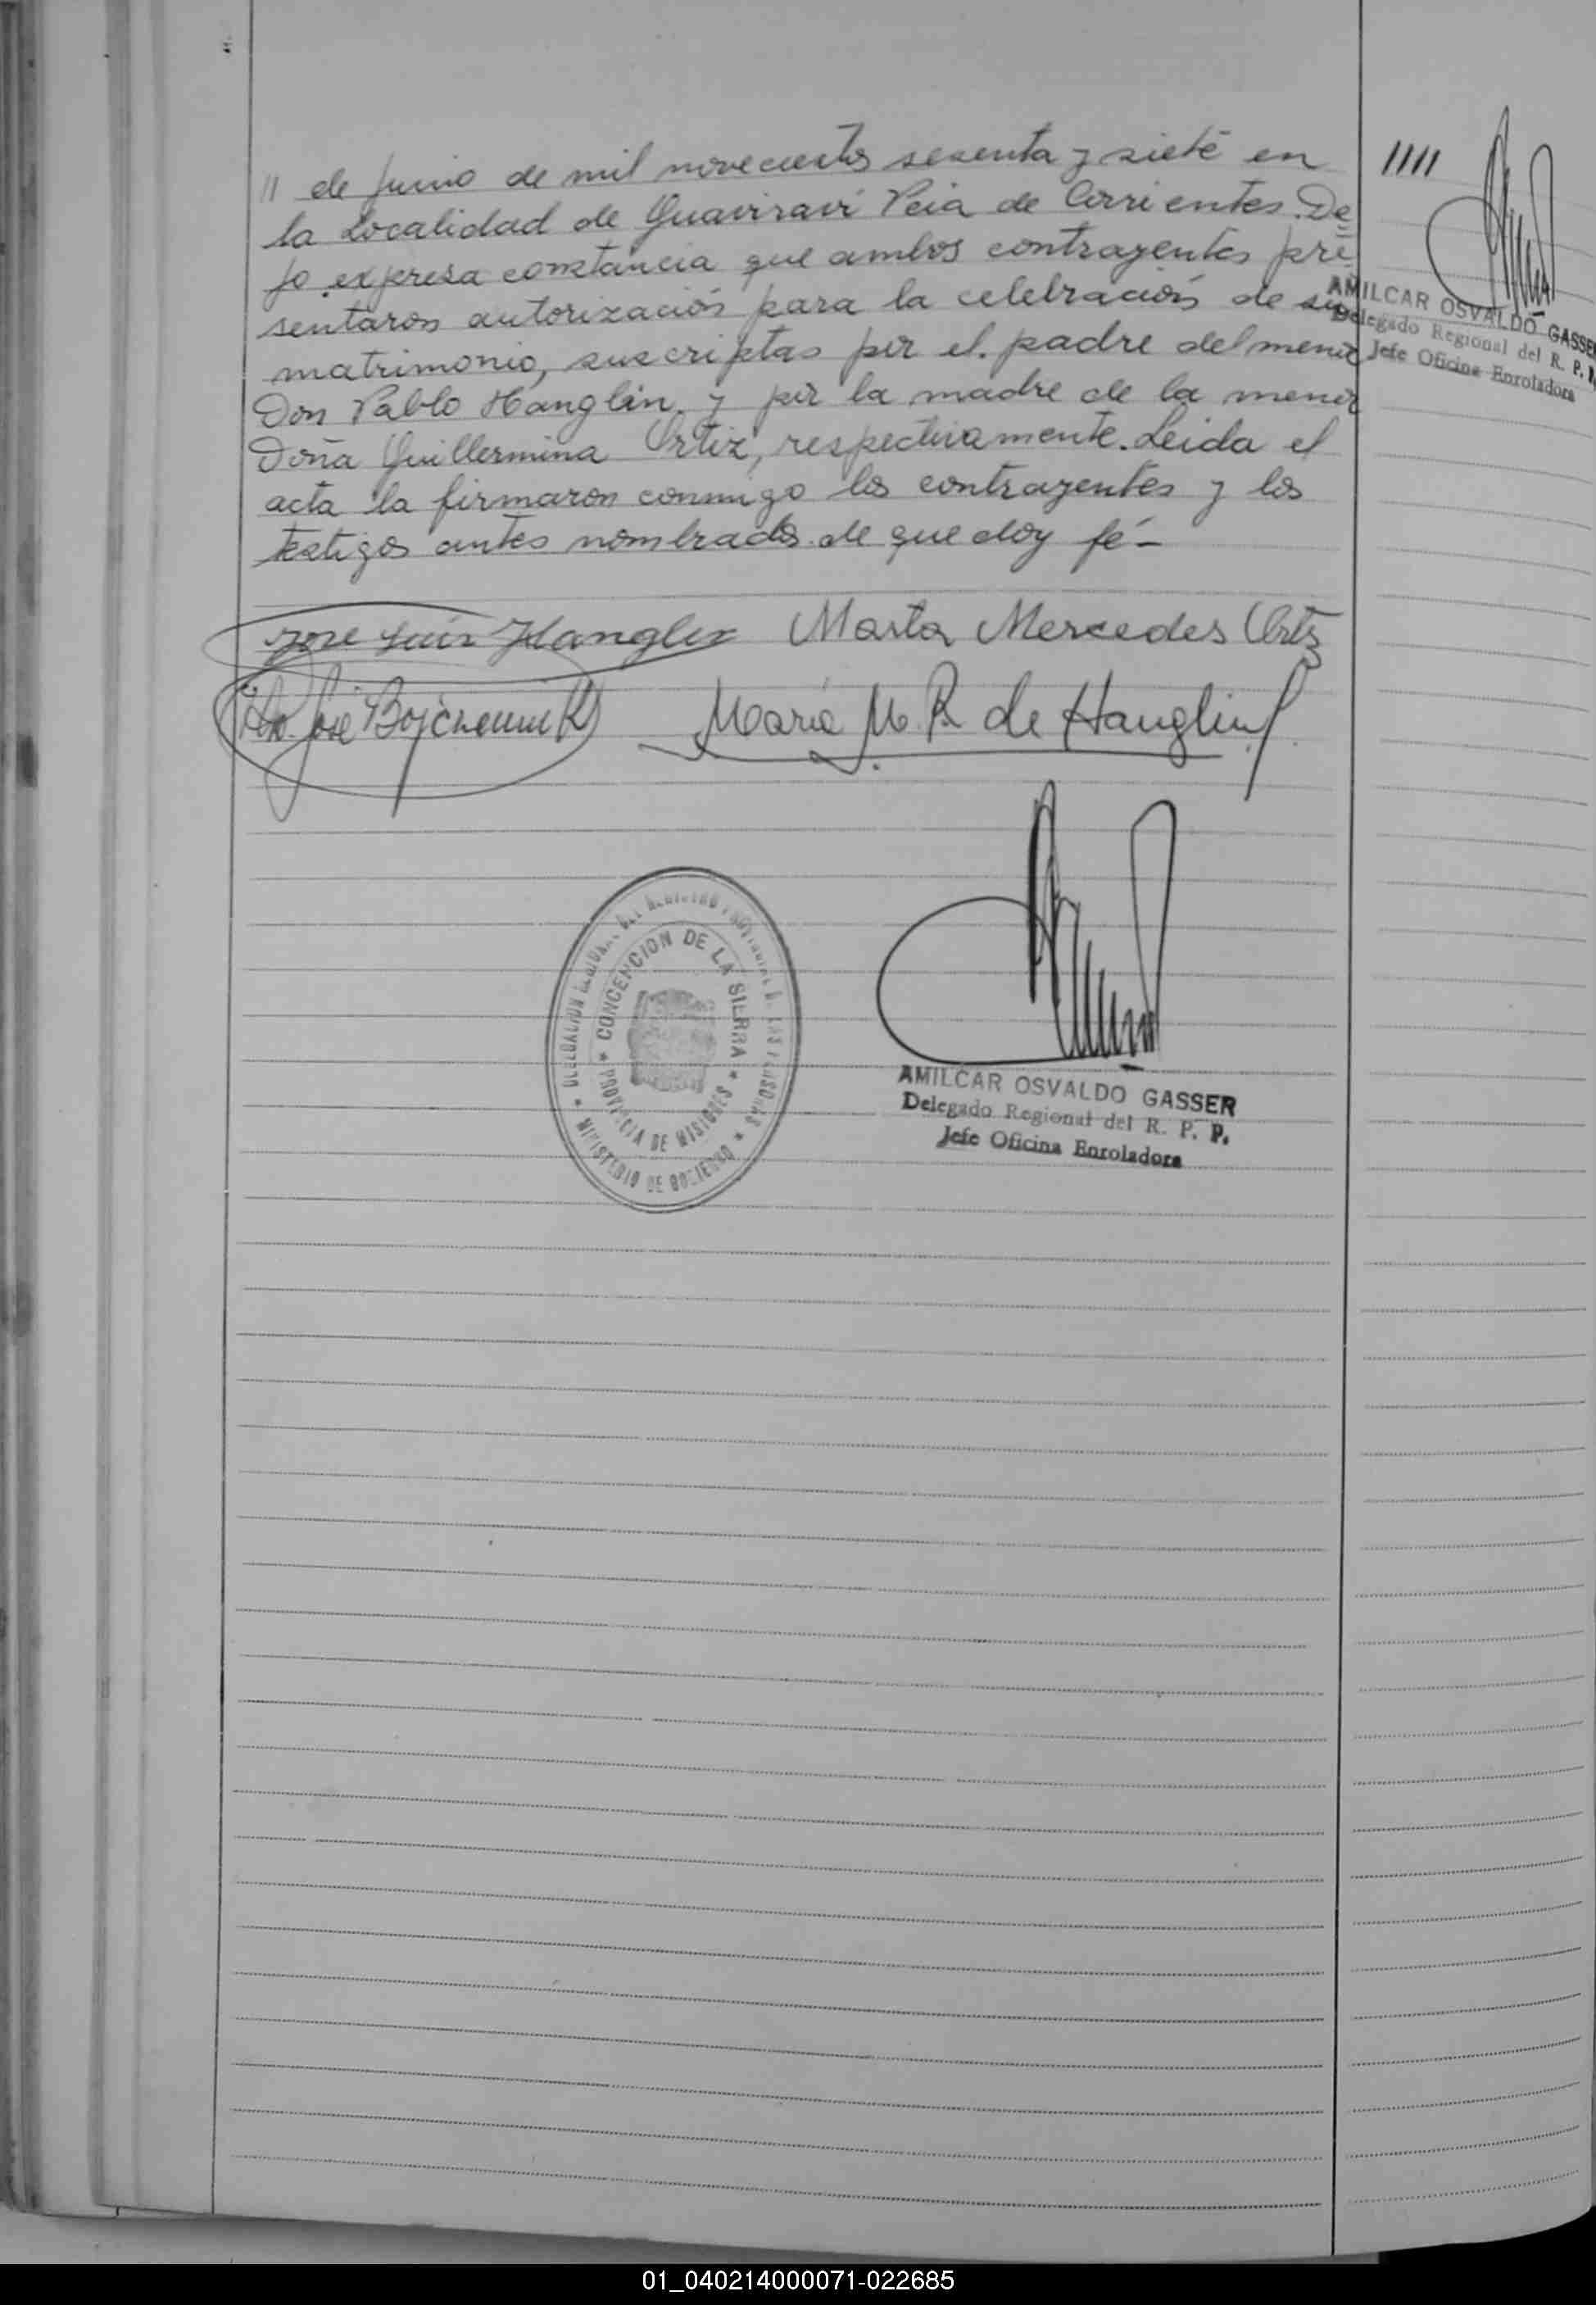 11 de Junio de mil novecientos sesenta y siete en
la Localidad de Guaviraví Pcia de Corrientes. De=
jo expresa constancia que ambos contrayentes pre=
sentaron autorización para la celebración de su
matrimonio, suscriptas por el. padre del menor
Don Pablo Hanglin y por la madre de la menor
Doña Guillermina Ortiz, respectivamente. Leida el
acta la firmaron conmigo los contrayentes y los
testigos antes nombrados de que doy fé-
Jose Luis Hanglin Marta Mercedes Ortiz
José
Maria M. R. de Hanglin
CONCEPCION DE LA SIERRA
* PROVINCIA DE MISIONES *
* MINISTERIO DE GOBIERNO *
AMILCAR OSVALDO GASSER
Delegado Regional del R. P. P.
Jefe Oficina Enroladora
1111
AMILCAR OSVALDO GASSER
Delegado Regional del R. P. P.
Jefe Oficina Enroladora
01_040214000071-022685